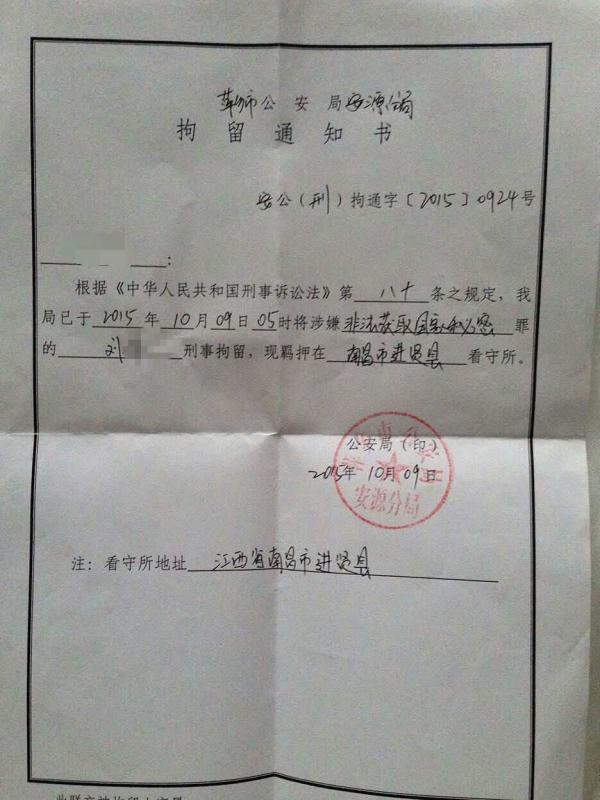 萍乡市公安局安源分局
拘留通知书
安公（刑）拘通字〔2015〕0924号
：
根据《中华人民共和国刑事诉讼法》第八十条之规定，我
局已于2015年10月09日05时将涉嫌非法获取国家秘密罪
的刘 刑事拘留，现羁押在南昌市进贤县看守所。
公安局（印）
2015年10月09日
安源分局
注：看守所地址江西省南昌市进贤县